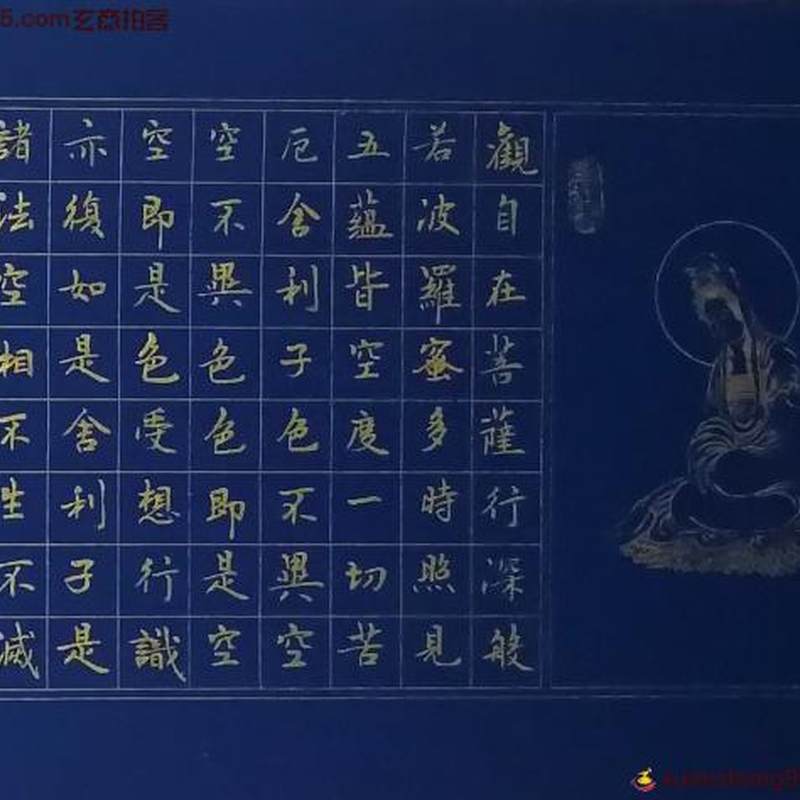 觀自在菩薩行深般
若波羅蜜多時照見
五蘊皆空度一切苦
厄舍利子色不異空
空不異色色即是空
空即是色受想行識
亦復如是舍利子是
諸法空相不生不滅
.com玄商拍客